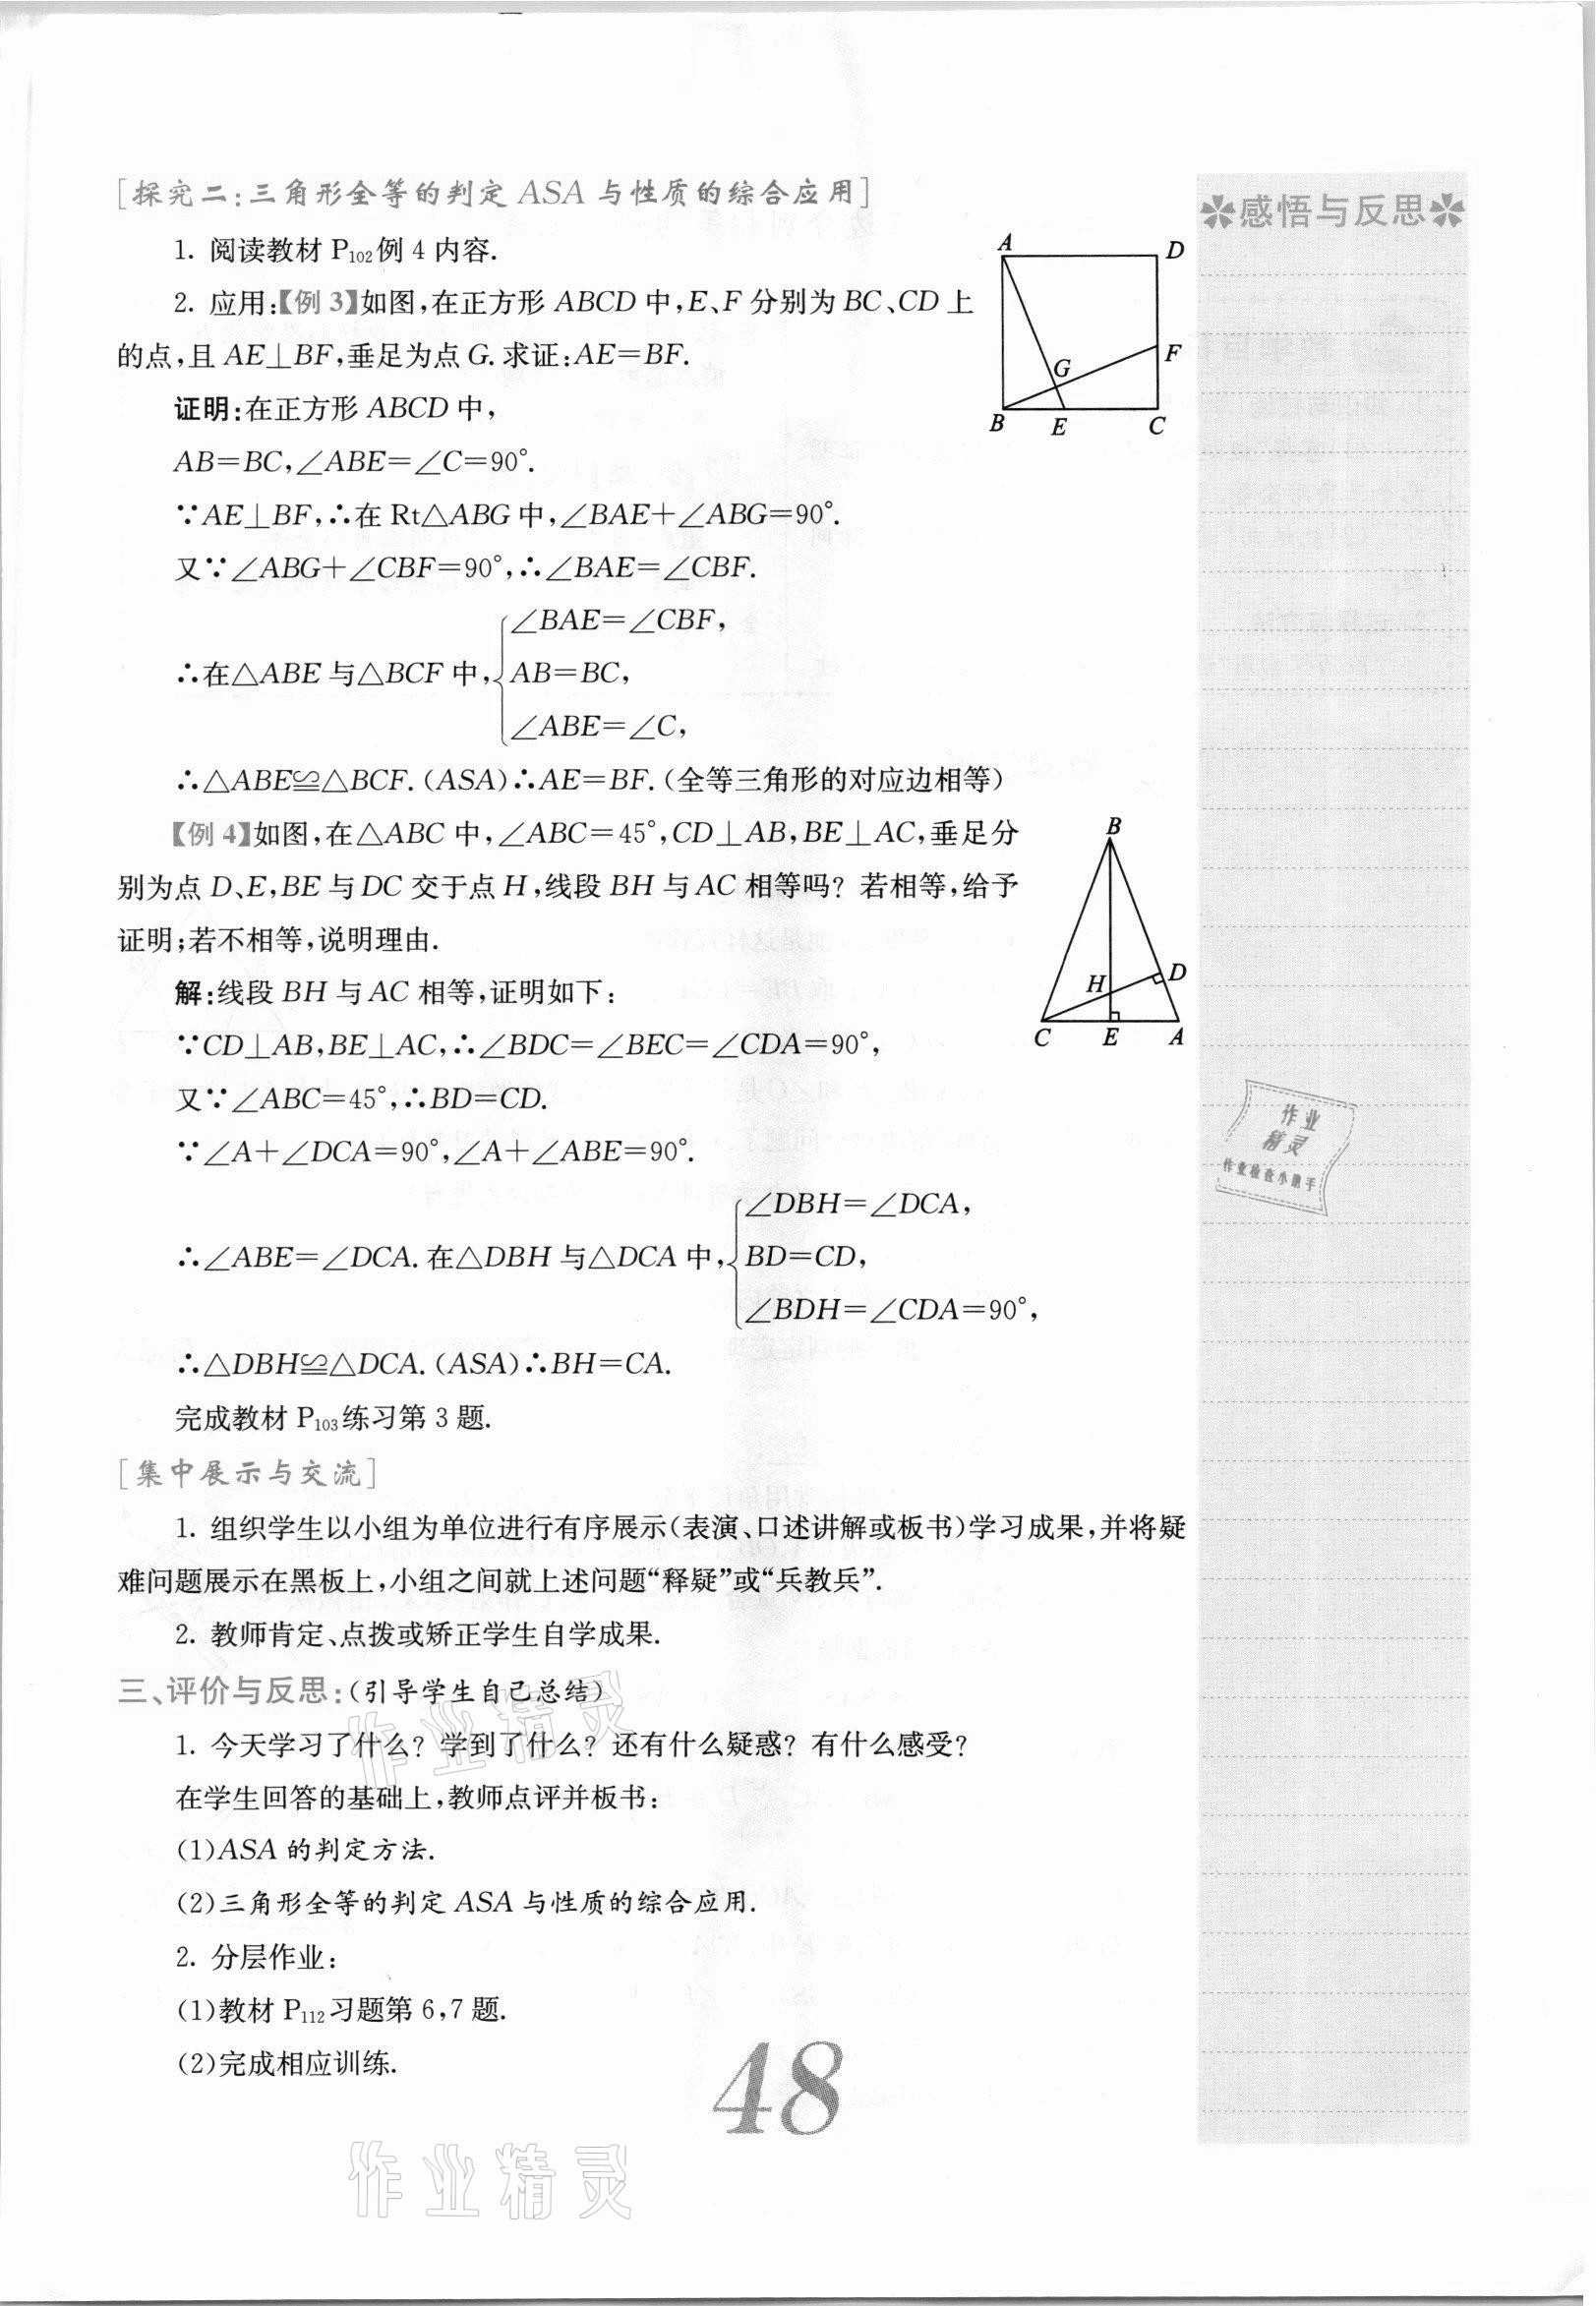 [探究二:三角形全等的判定 ASA 与性质的综合应用]
✽感悟与反思✽
1. 阅读教材 P₁₀₂例 4 内容.
2. 应用:【例 3】如图,在正方形 ABCD 中,E、F 分别为 BC、CD 上
的点,且 AE⊥BF,垂足为点 G. 求证:AE=BF.
A
D
G
F
B
E
C
证明:在正方形 ABCD 中,
AB=BC,∠ABE=∠C=90°.
∵AE⊥BF,∴在 Rt△ABG 中,∠BAE+∠ABG=90°.
又∵∠ABG+∠CBF=90°,∴∠BAE=∠CBF.
∠BAE=∠CBF,
∴在△ABE 与△BCF 中,{AB=BC,
∠ABE=∠C,
∴△ABE≌△BCF. (ASA)∴AE=BF. (全等三角形的对应边相等)
【例 4】如图,在△ABC 中,∠ABC=45°,CD⊥AB,BE⊥AC,垂足分
别为点 D、E,BE 与 DC 交于点 H,线段 BH 与 AC 相等吗? 若相等,给予
证明;若不相等,说明理由.
B
H
D
C
E
A
解:线段 BH 与 AC 相等,证明如下:
∵CD⊥AB,BE⊥AC,∴∠BDC=∠BEC=∠CDA=90°,
又∵∠ABC=45°,∴BD=CD.
∵∠A+∠DCA=90°,∠A+∠ABE=90°.
∠DBH=∠DCA,
∴∠ABE=∠DCA. 在△DBH 与△DCA 中,{BD=CD,
∠BDH=∠CDA=90°,
∴△DBH≌△DCA. (ASA)∴BH=CA.
完成教材 P₁₀₃练习第 3 题.
[集中展示与交流]
1. 组织学生以小组为单位进行有序展示(表演、口述讲解或板书)学习成果,并将疑
难问题展示在黑板上,小组之间就上述问题“释疑”或“兵教兵”.
2. 教师肯定、点拨或矫正学生自学成果.
三、评价与反思:(引导学生自己总结)
1. 今天学习了什么? 学到了什么? 还有什么疑惑? 有什么感受?
在学生回答的基础上,教师点评并板书:
(1)ASA 的判定方法.
(2)三角形全等的判定 ASA 与性质的综合应用.
2. 分层作业:
(1)教材 P₁₁₂习题第 6,7 题.
(2)完成相应训练.
48
作业
精灵
作业检查小助手
作业精灵
作业精灵